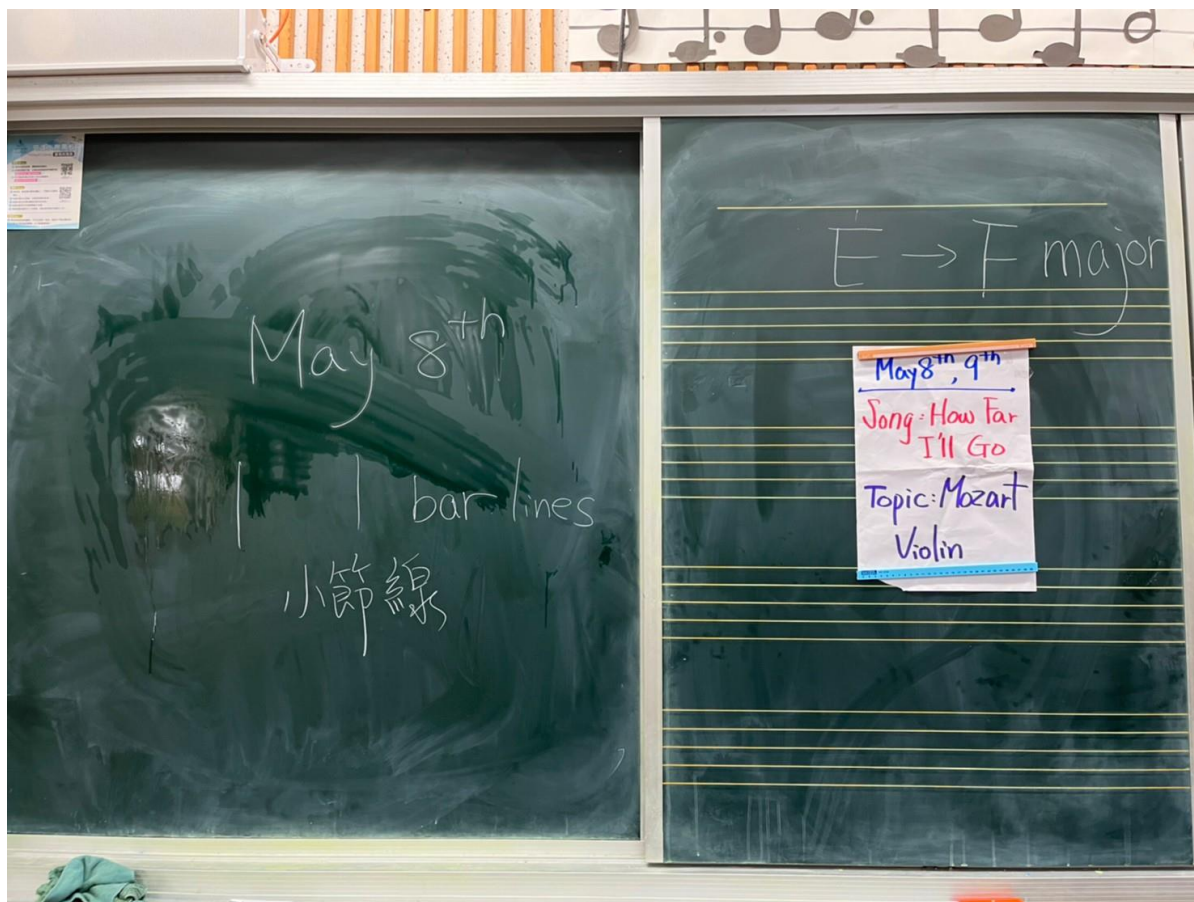 May 8th
| | bar lines
小節線
E → F major
May 8th, 9th
Song: How Far
I'll Go
Topic: Mozart
Violin